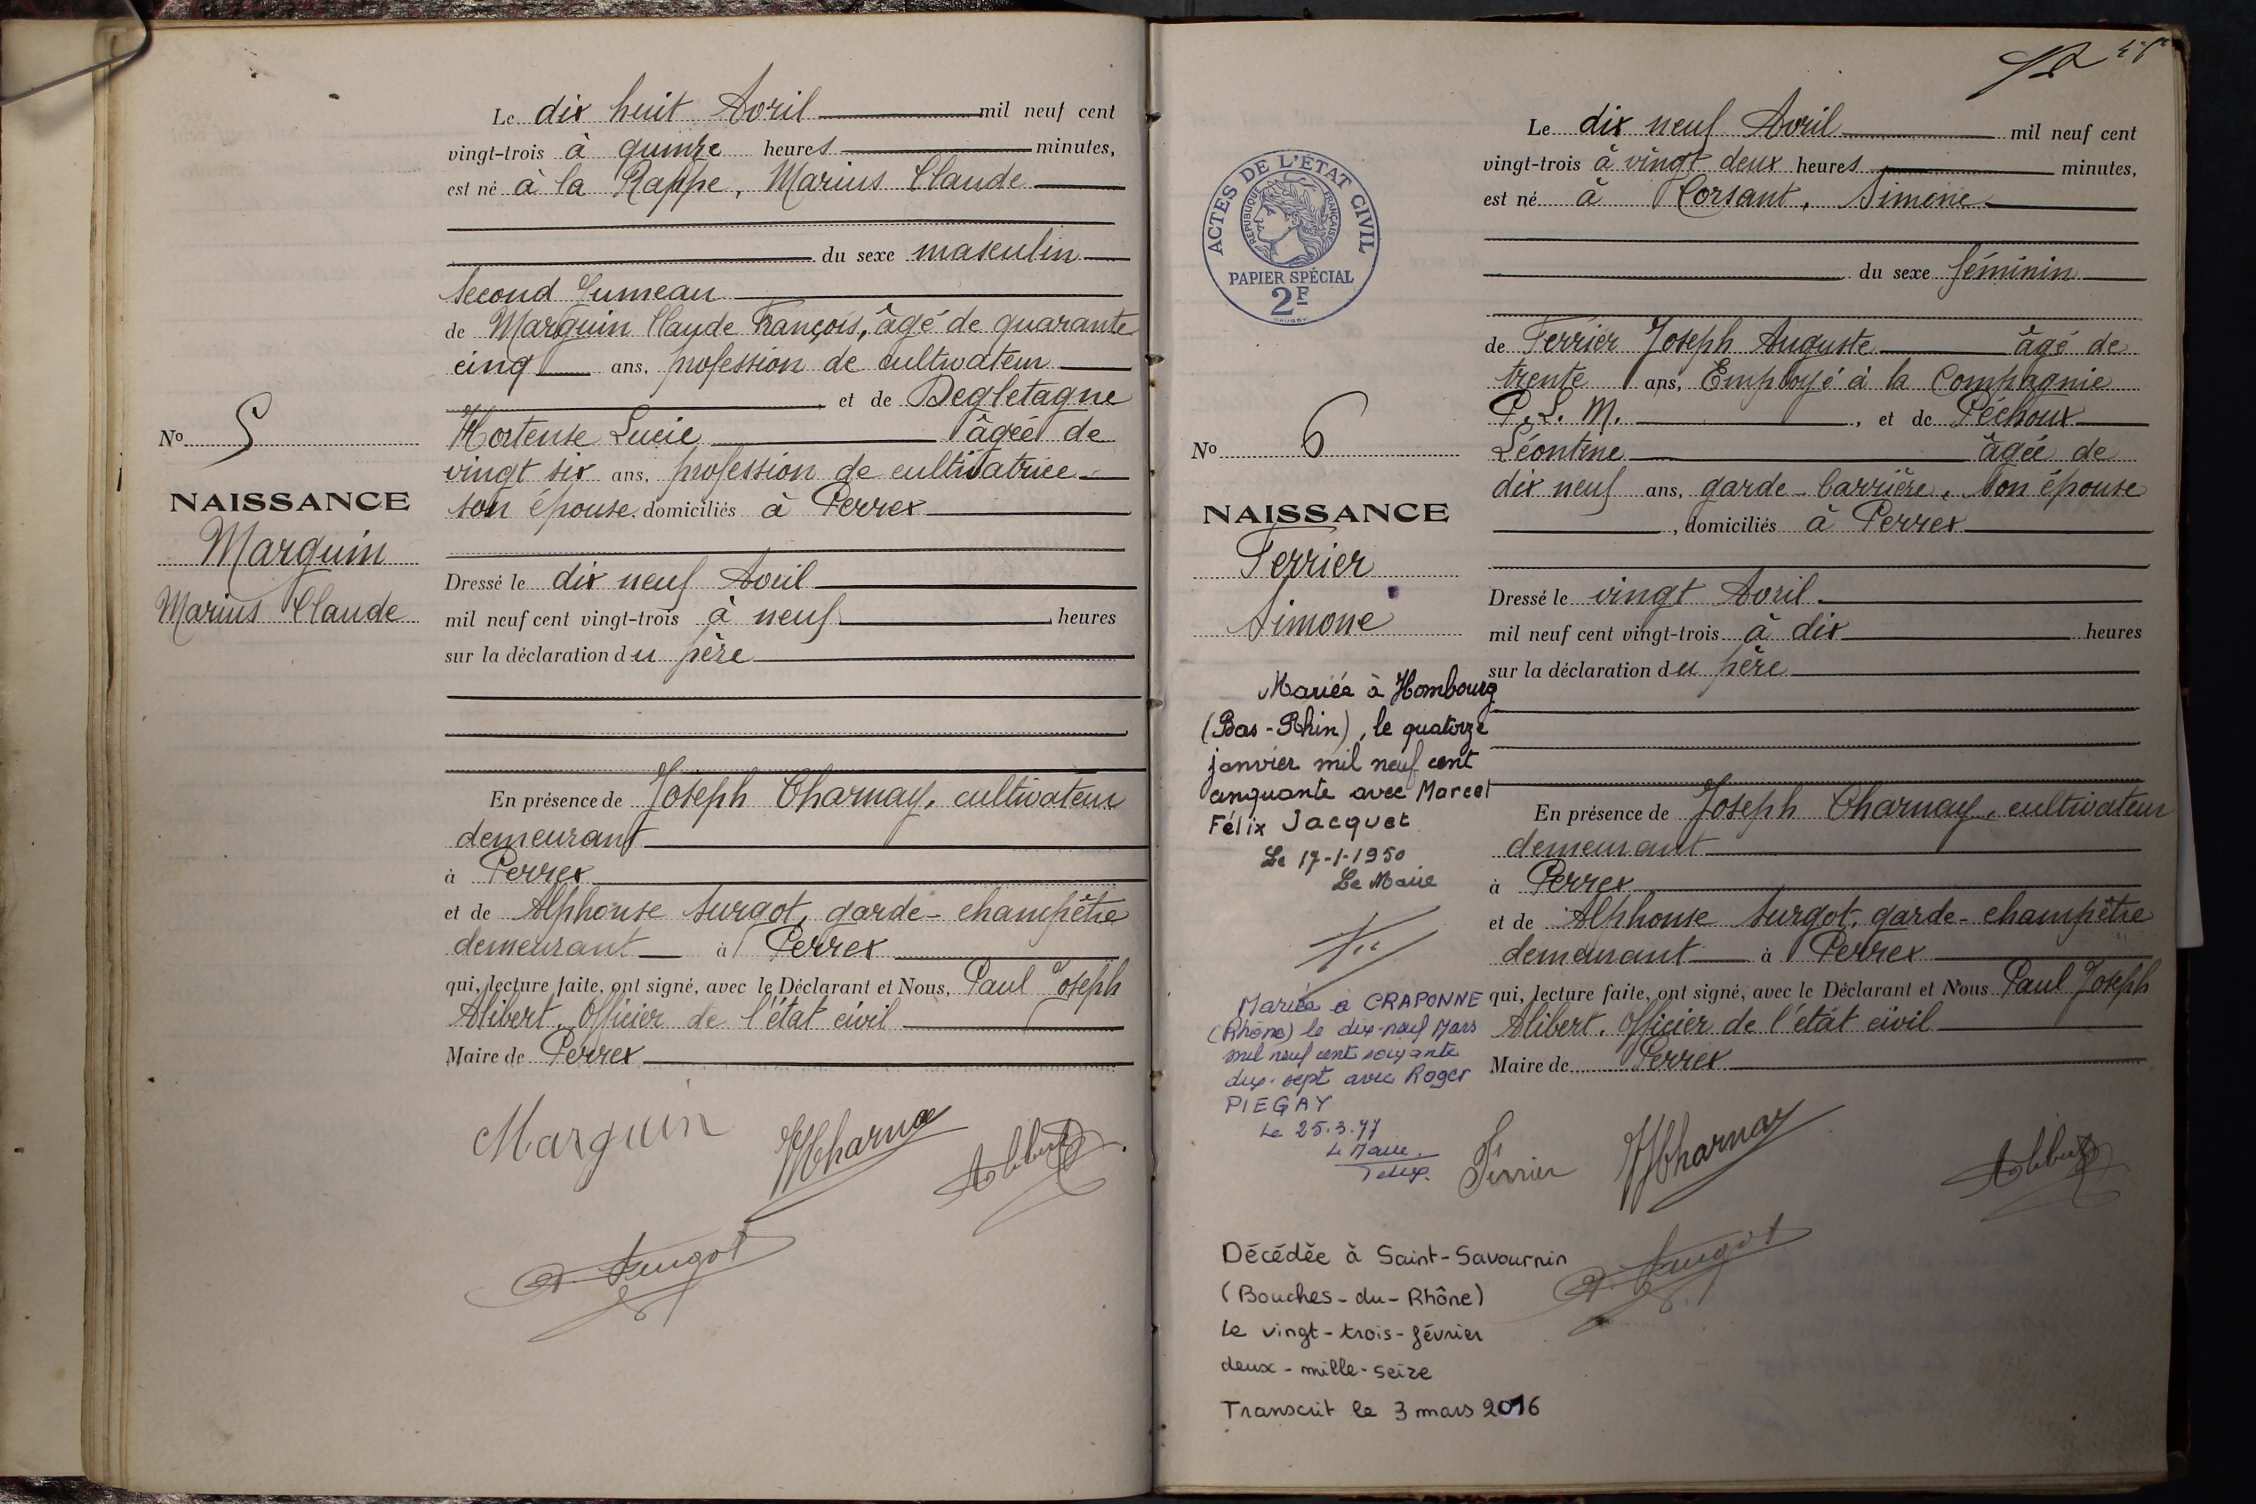 Le dix huit Avril mil neuf cent
vingt-trois à quinze heures minutes,
est né à la Rappe, Marius Claude
du sexe masculin
second Jumeau
de Marguin Claude François, âgé de quarante
cinq ans, profession de cultivateur
et de Degletagne
No 5
Hortense Lucie âgée de
vingt six ans, profession de cultivatrice
NAISSANCE
son épouse. domiciliés à Perrex
Marguin
Marius Claude
Dressé le dix neuf Avril
mil neuf cent vingt-trois à neuf heures
sur la déclaration du père
En présence de Joseph Charnay, cultivateur
demeurant
à Perrex
et de Alphonse Surgot, garde-champêtre
demeurant à Perrex
qui, lecture faite, ont signé, avec le Déclarant et Nous, Paul Joseph
Alibert, Officier de l'état civil
Maire de Perrex
Marguin
JHCharnay
Alibert
A. Surgot
Le dix neuf Avril mil neuf cent
vingt-trois à vingt deux heures minutes,
est né à Corsant, Simone
ACTES DE L'ÉTAT CIVIL
RÉPUBLIQUE FRANÇAISE
PAPIER SPÉCIAL
2F
du sexe féminin
de Ferrier Joseph Auguste âgé de
trente ans, Employé à la Compagnie
P. L. M. , et de Péchoux
No 6
Léontine âgée de
dix neuf ans, garde-barrière, son épouse
NAISSANCE
, domiciliés à Perrex
Ferrier
Simone
Dressé le vingt Avril
mil neuf cent vingt-trois à dix heures
sur la déclaration du père
Mariée à Hombourg
(Bas-Rhin), le quatorze
janvier mil neuf cent
cinquante avec Marcel
Félix Jacquet
Le 17-1-1950
Le Maire
En présence de Joseph Charnay, cultivateur
demeurant
à Perrex
et de Alphonse Surgot, garde-champêtre
demeurant à Perrex
qui, lecture faite, ont signé, avec le Déclarant et Nous Paul Joseph
Alibert, Officier de l'état civil
Maire de Perrex
Mariée à CRAPONNE
(Rhône) le dix-neuf Mars
mil neuf cent soixante
dix-sept avec Roger
PIEGAY
Le 25.3.77
Le Maire.
Ferrier
JHCharnay
Alibert
A. Surgot
Décédée à Saint-Savournin
(Bouches-du-Rhône)
Le vingt-trois-février
deux-mille-seize
Transcrit le 3 mars 2016